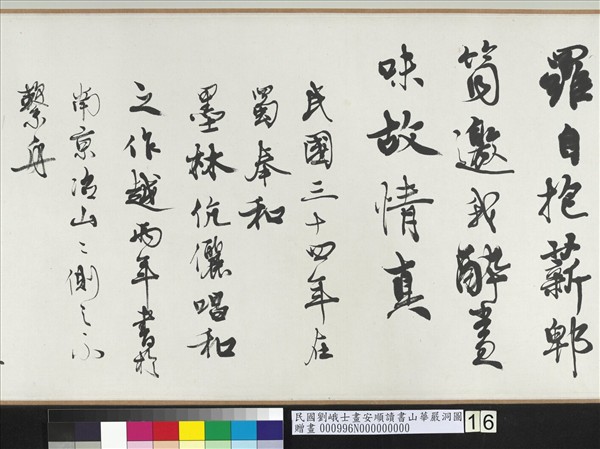 羅自抱薪郫
筒邀我醉
味故情真
民國三十四年在
蜀奉和
墨林伉儷唱和
之作越兩年書於
南京冶山〻側之不
繫舟
民國劉峨士畫安順讀書山華嚴洞圖
贈畫 000996N000000000
16